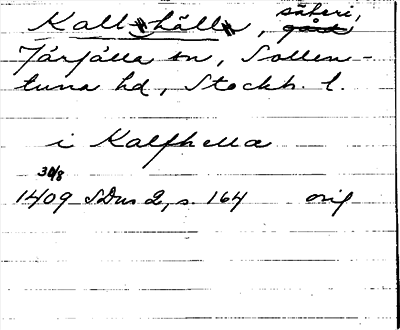 Kallhäll, säteri, gård
Järfälla sn, Sollen-
tuna hd, Stockh. l.
i Kalfhella
30/8
1409 SDns 2, s. 164 orig